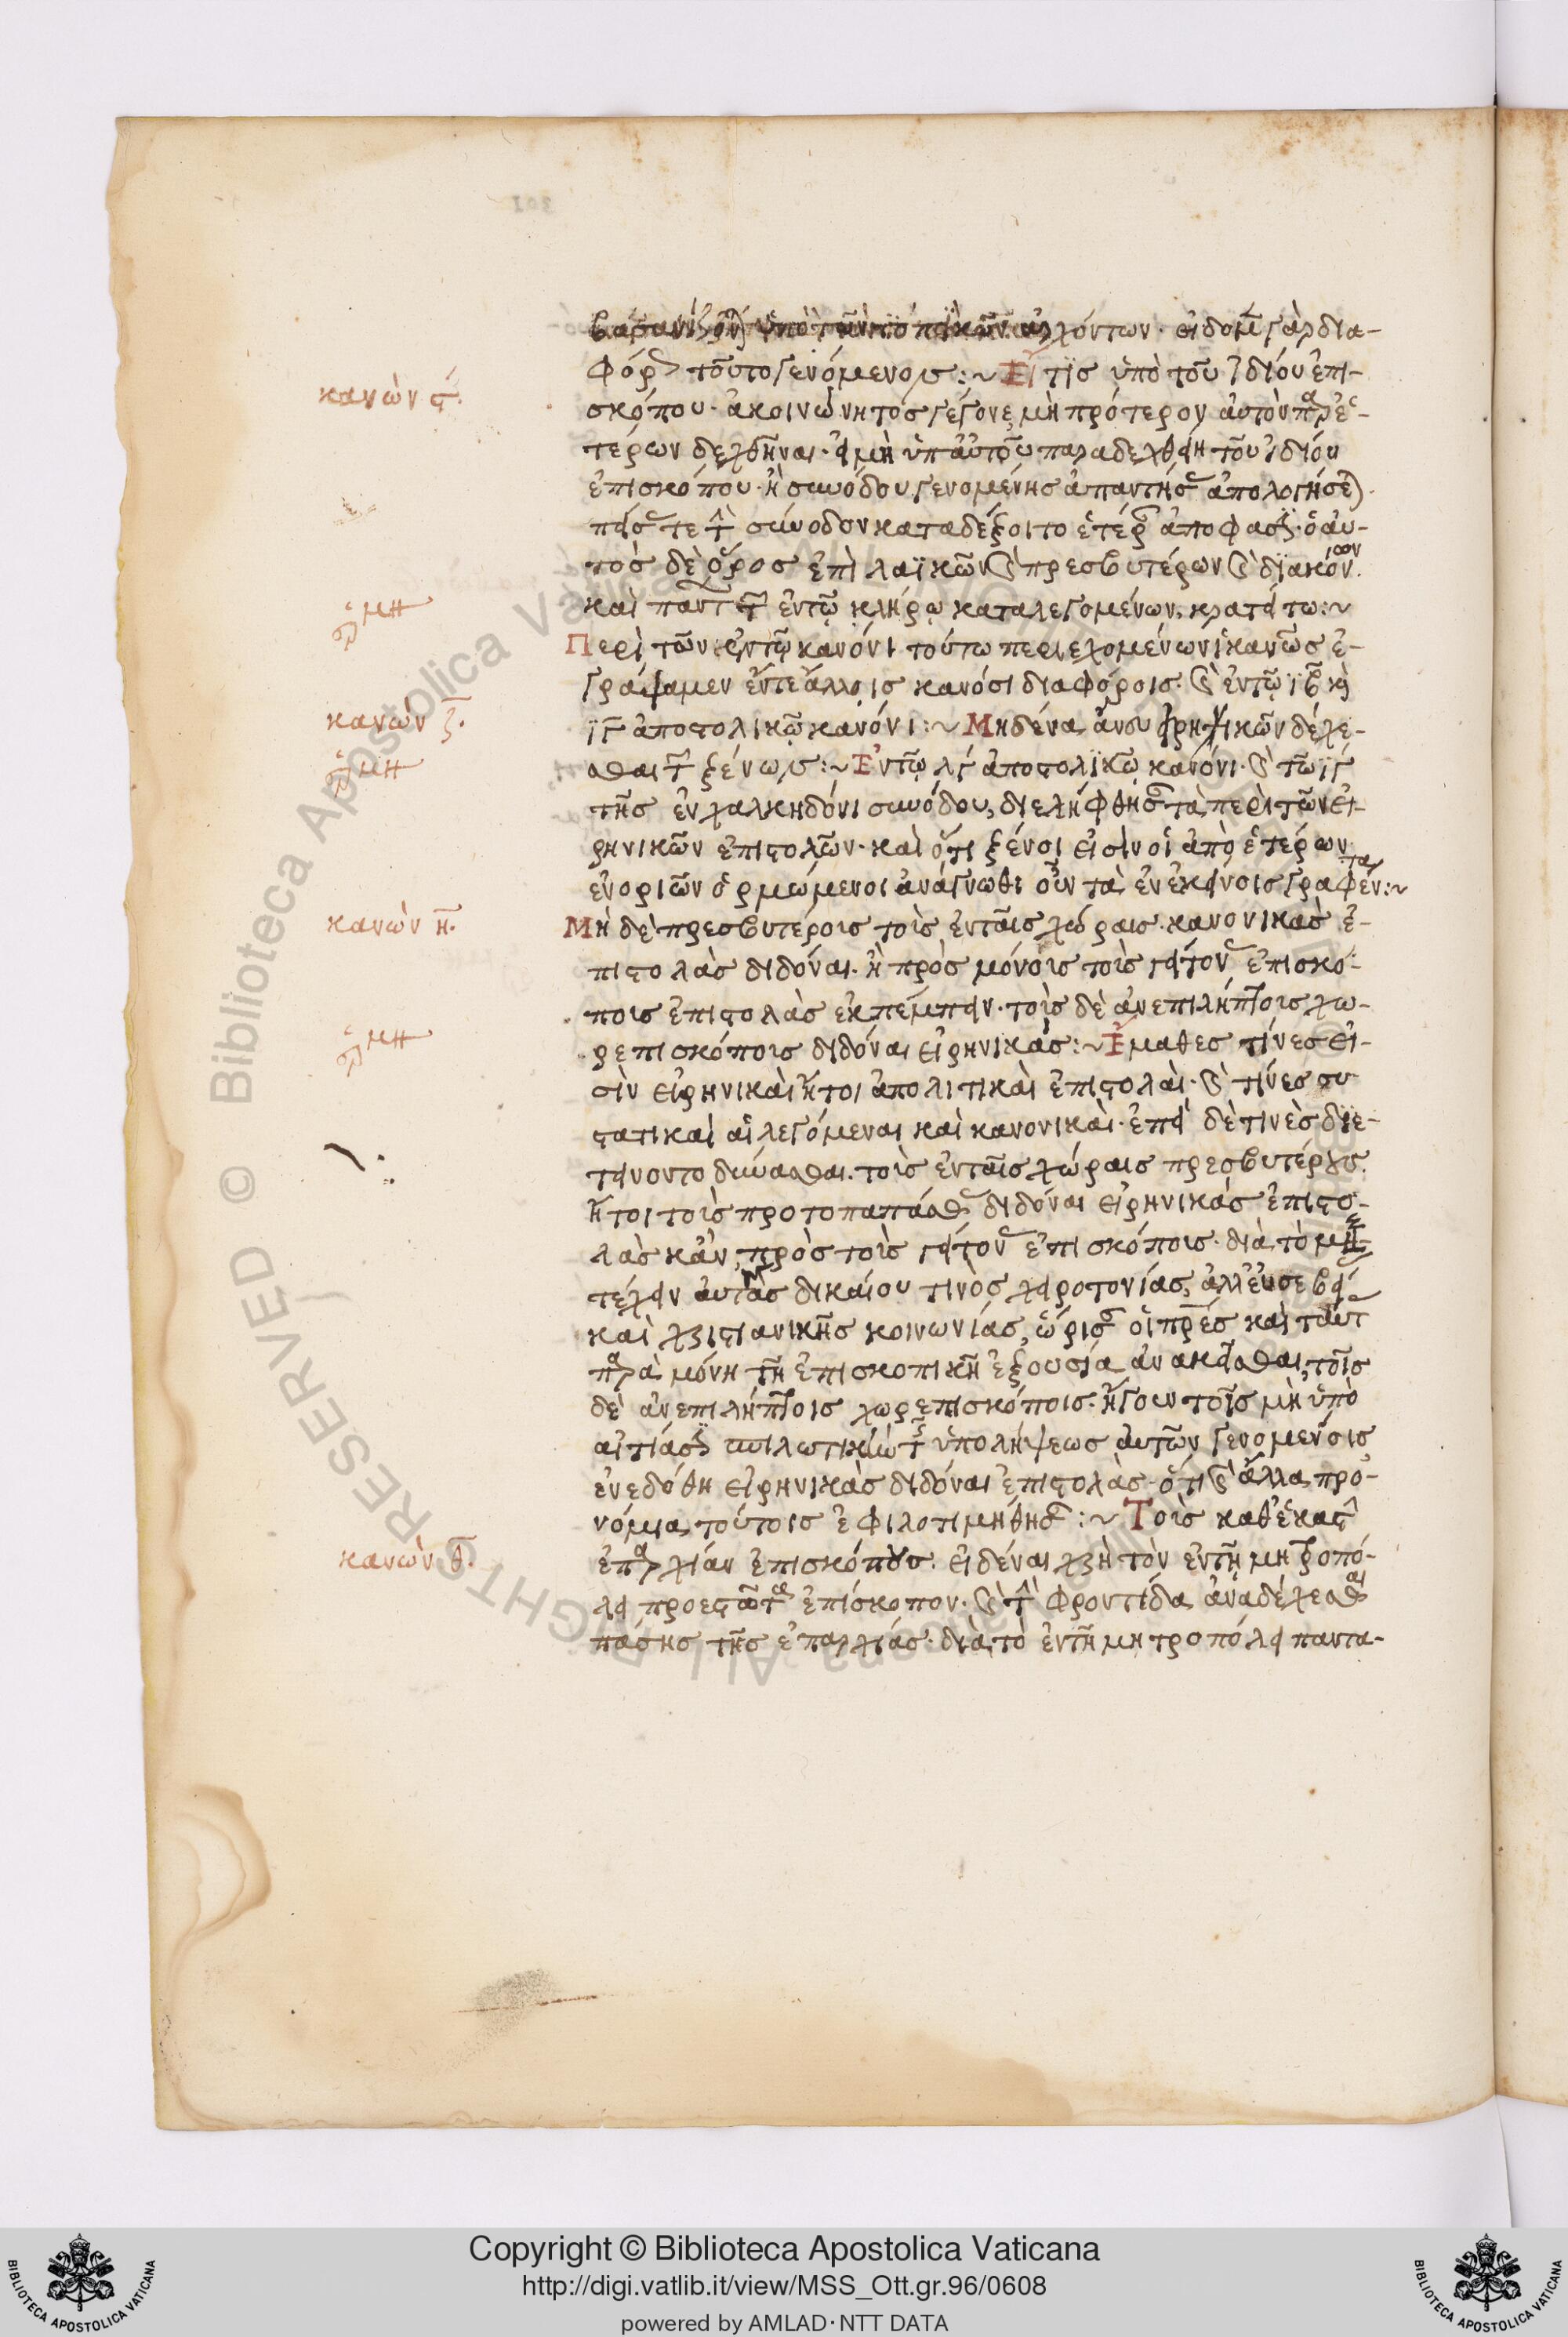 βασανίζονται ὑπὸ τῶν τοπικῶν ἀρχόντων· εἴδομεν γὰρ δια-
φόρως τοῦτο γενόμενον :~ Εἴ τις ὑπὸ τοῦ ἰδίου ἐπι-
κανὼν ϛ.
σκόπου ἀκοινώνητος γέγονε, μὴ πρότερον αὐτὸν παρ' ἑ-
τέρων δεχθῆναι· εἰ μὴ ὑπ' αὐτοῦ παραδεχθείη τοῦ ἰδίου
ἐπισκόπου· ἢ συνόδου γενομένης ἀπαντήσας ἀπολογήσεται
πείσας τε τὴν σύνοδον καταδέξοιτο ἑτέραν ἀπόφασιν· ὁ αὐ-
τὸς δὲ ὅρος ἐπὶ λαϊκῶν καὶ πρεσβυτέρων καὶ διακόνων.
καὶ πάντων τῶν ἐν τῷ κλήρῳ καταλεγομένων, κρατείτω :~
ἑρμη
Περὶ τῶν ἐν τῷ κανόνι τούτω περιεχομένων ἱκανῶς ἐ-
γράψαμεν ἔν τε ἄλλοις κανόσι διαφόροις. καὶ ἐν τῷ ιβ καὶ
κανὼν ζ.
ιγ ἀποστολικῷ κανόνι :~ Μηδένα ἄνευ εἰρηνικῶν δέχε-
σθαι τῶν ξένων :~ Ἐν τῷ λγ ἀποστολικῷ κανόνι· καὶ τῷ ιγ
ἑρμη
τῆς ἐν χαλκηδόνι συνόδου, διελήφθησαν τὰ περὶ τῶν εἰ-
ρηνικῶν ἐπιστολῶν· καὶ ὅτι ξένοι εἰσὶν οἱ ἀπὸ ἑτέρων
ἐνοριῶν ὁρμώμενοι ἀνάγνωθι οὖν τὰ ἐν ἐκείνοις γραφέντα :~
κανὼν η.
Μὴ δὲ πρεσβυτέροις τοῖς ἐν ταῖς χώραις κανονικὰς ἐ-
πιστολὰς διδόναι· ἢ πρὸς μόνοις τοῖς γείτονας ἐπισκό-
ποις ἐπιστολὰς ἐκπέμπειν· τοῖς δὲ ἀνεπιλήπτοις χω-
ρεπισκόποις διδόναι εἰρηνικάς :~ Ἔμαθες τίνες εἰ-
ἑρμη
σὶν εἰρηνικαὶ ἤτοι ἀπολιτικαὶ ἐπιστολαὶ· καὶ τίνες συ-
στατικαὶ αἱ λεγόμεναι καὶ κανονικαὶ· ἐπεὶ δὲ τινὲς διε-
τείνοντο δύνασθαι τοῖς ἐν ταῖς χώραις πρεσβυτέροις
ἤτοι τοῖς προτοπαπάσιν διδόναι εἰρηνικὰς ἐπιστο-
λὰς κἂν πρὸς τοὶς γείτονας ἐπισκόποις διὰ τὸ μὴ
τέχειν αὐτὰς δικαίου τινὸς χειροτονίας, ἀλλ' εὐσεβεί
καὶ χριστιανικῆς κοινωνίας, ὥρισαν οἱ πρες καὶ ταύτην
παρὰ μόνη τῆ ἐπισκοπικῆ ἐξουσία ἀνακεῖσθαι, τοῖς
δὲ ἀνεπιλήπτοις χωρεπισκόποις. ἤγουν τοῖς μὴ ὑπὸ
αἰτίασιν σπιλωτικὴν τῆς ὑπολήψεως αὐτῶν γενομένοις
ἐνεδόθη εἰρηνικὰς διδόναι ἐπιστολὰς· ὅτι καὶ ἄλλα προ-
νόμια τούτοις ἐφιλοτιμήθησαν :~ Τοὶς καθ' ἑκάστην
κανὼν θ.
ἐπαρχίαν ἐπισκόπους εἰδέναι χρὴ τὸν ἐν τῆ μητροπό-
λει προεστῶτα ἐπίσκοπον· καὶ τὴν φροντίδα ἀναδέχεσθαι
πάσης τῆς ἐπαρχίας· διὰ τὸ ἐν τῆ μητροπόλει παντα-
Copyright © Biblioteca Apostolica Vaticana
http://digi.vatlib.it/view/MSS_Ott.gr.96/0608
powered by AMLAD·NTT DATA